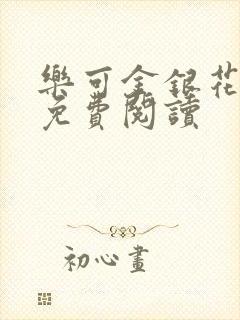 樂可金銀花
免費閱讀
初心畫